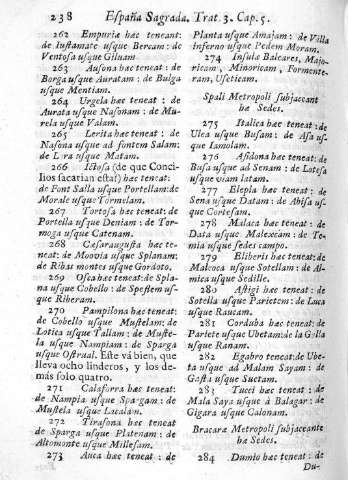 238 España Sagrada. Trat. 3. Cap. 5.
262 Empuria hæc teneant:
de Justamate usque Bercam: de
Ventosa usque Gilvam
263 Ausona hæc teneat: de
Borga usque Auratam: de Bulga
usque Mentiam.
264 Urgela hæc teneat: de
Aurata usque Nasonam: de Mu-
rela usque Valam.
265 Lerita hæc teneat: de
Nasona usque ad fontem Salam:
de usque Matam.
266 Ictosa (de que Conci-
lios sacarian esta!) hæc teneat:
de Font Salla usque Portellam: de
Morale usque Tormelam.
267 Tortosa hæc teneat: de
Portella usque Deniam: de Tor-
moga usque Catenam.
268 Cæsaraugusta hæc te-
neat: de Moovia usque Splanam:
de Ribas montes usque Gordoto.
269 Osca hæc teneat: de Spla-
na usque Cobello: de Speslem us-
que Riberam.
270 Pampilona hæc teneat:
de Cobello usque Mustelam: de
Lotica usque Tallam: de Muste-
la usque Nampiam: de Sparga
usque Ostrual. Este vá bien, que
lleva ocho linderos, y los de-
más solo quatro.
271 Calaforra hæc teneat:
de Nampia usque Spargam: de
Mustela usque Lacalam.
272 Tirasona hæc teneat
de Sparga usque Platenam: de
Altomonte usque Millesam.
273 Auca hæc teneat: de
Planta usque Amajam: de Villa
inferno usque Pedem Moram.
274 Insula Baleares, Majo-
ricam, Minoricam, Formente-
ram, Useticam.
Spali Metropoli subjaceant
hæ Sedes.
275 Italica hæc teneat: de
Ulea usque Busam: de Asa us-
que Lamolam.
276 Asidona hæc teneat: de
Busa usque ad Senam: de Latesa
usque viam latam.
277 Elepla hæc teneat: de
Sena usque Datam: de Abisa us-
que Cortesam.
278 Malaca hæc teneat: de
Data usque Malexcam: de Te-
mia usque sedes campo.
279 Eliberis hæc teneat: de
Maleoca usque Sotellam: de Al-
mica usque Sedille.
280 Astigi hæc teneat: de
Sotella usque Parietem: de Luca
usque Raucam.
281 Corduba hæc teneat: de
Pariete usque Ubetam: de la Galla
usque Ranam.
282 Egabro teneat: de Ube-
ta usque ad Malam Sayam: de
Gasta usque Suctam.
283 Tucci hæc teneat: de
Mala Saya usque à Balagar: de
Gigara usque Calonam.
Bracaræ Metropoli subjaceant
hæ Sedes.
284 Dumio hæc teneat: de
Du-